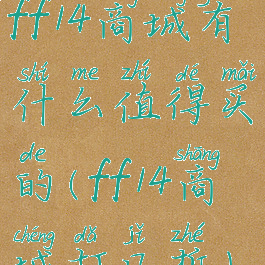 ff14商城有
shí me zhí dé mǎi
什么值得买
de shāng
的(ff14商
chéng dǎ jǐ zhé
城打几折)